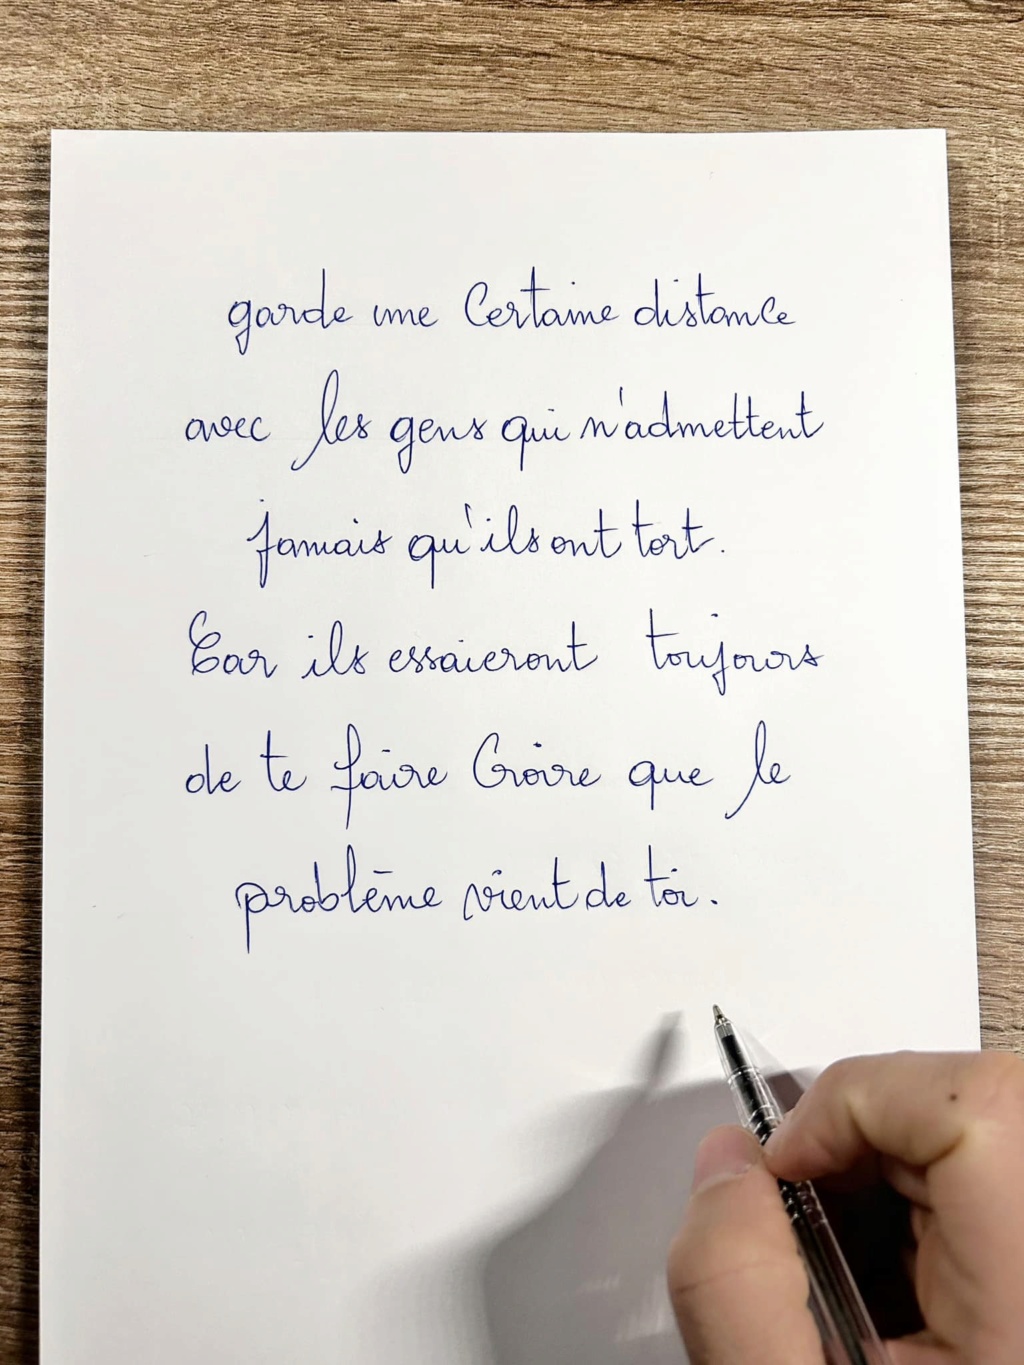 garde une Certaine distance
avec les gens qui n'admettent
jamais qu'ils ont tort.
Car ils essaieront toujours
de te faire Croire que le
problème vient de toi.